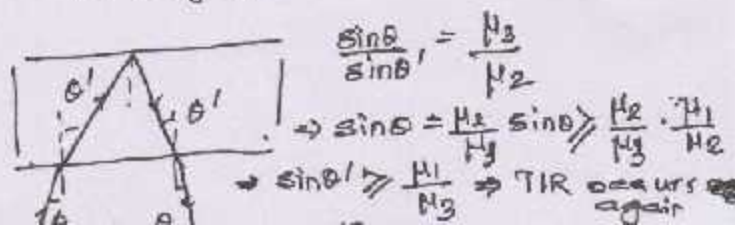 sinθ / sinθ' = μ3 / μ2
θ' θ' ⇒ sinθ = μ2/μ3 sinθ ⩾ μ2/μ3 · μ1/μ2
⇒ sinθ' ⩾ μ1/μ3 ⇒ TIR occurs
again
θ θ